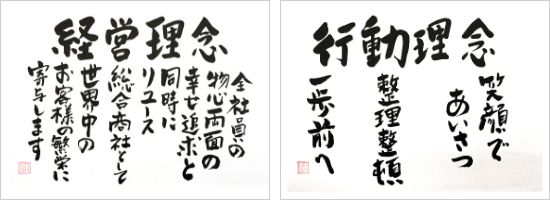 経営理念
全社員の
物心両面の
幸せ追求と
同時に
リユース
総合商社として
世界中の
お客様の繁栄に
寄与します
行動理念
笑顔で
あいさつ
整理整頓
一歩前へ